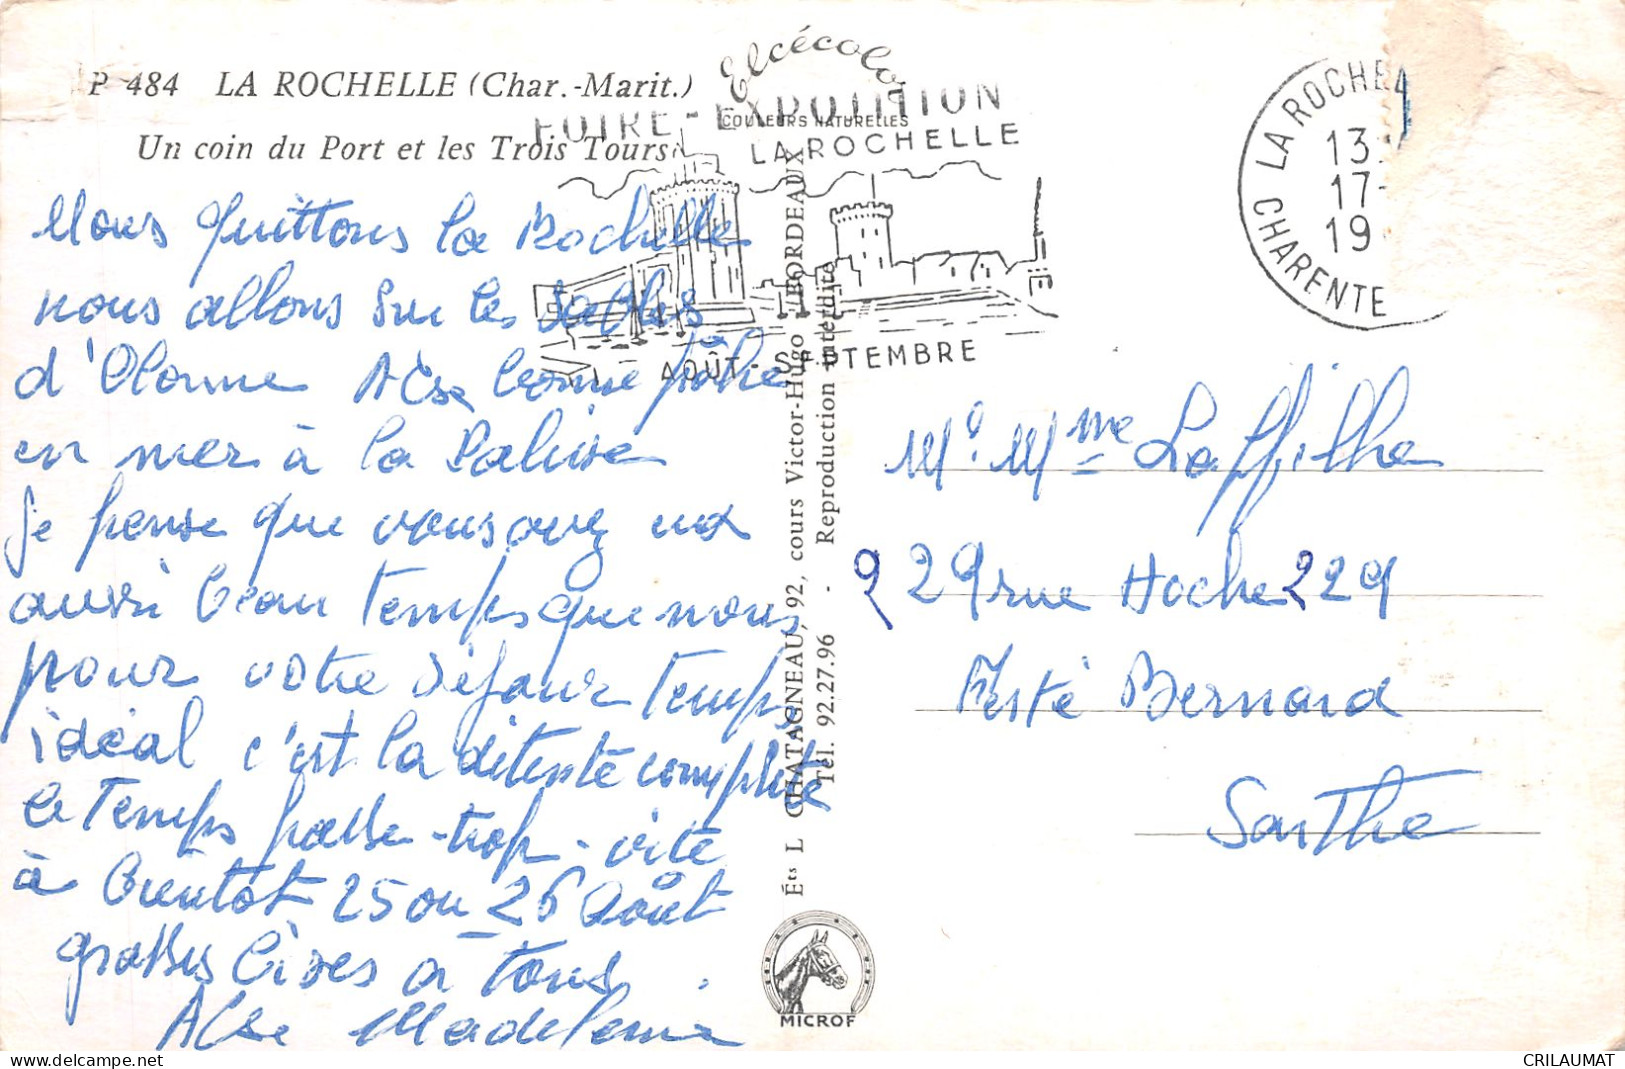 P 484 LA ROCHELLE (Char.-Marit.)
Un coin du Port et les Trois Tours
Elcécolor
COULEURS NATURELLES
FOIRE-EXPOSITION
LA ROCHELLE
AOÛT-SEPTEMBRE
LA ROCHEL
13
17-
19
CHARENTE
Nous quittons la Rochelle
nous allons sur les Sables
d'Olonne
en mer à la
je pense que vous avez
aussi beau temps que nous
pour votre séjour temps
idéal c'est la détente complète
le temps passe trop vite
à bientôt 25 ou 26 Août
grosses bises à tous
Madeleine
Mr. Mme
229 rue Hoche 229
Ferté Bernard
Sarthe
Éts L CHATAGNEAU, 92, cours Victor-Hugo - BORDEAUX
Tél. 92.27.96 - Reproduction interdite
MICROF
delcampe.net
CRILAUMAT